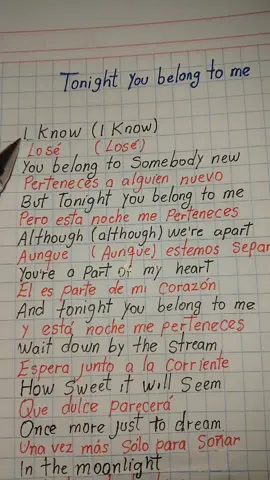 Tonight You belong to me
I Know (I Know)
Losé (Losé)
You belong to Somebody new
Perteneces a alguien nuevo
But Tonight You belong to me
Pero esta noche me Perteneces
Although (although) we're apart
Aunque (Aunque) estemos separ
You're a Part of my heart
El es parte de mi corazón
And tonight you belong to me
y está noche me perteneces
Wait down by the Stream
Espera junto a la Corriente
How Sweet it will Seem
Que dulce parecerá
Once more just to dream
Una vez más Sólo para Soñar
In the moonlight